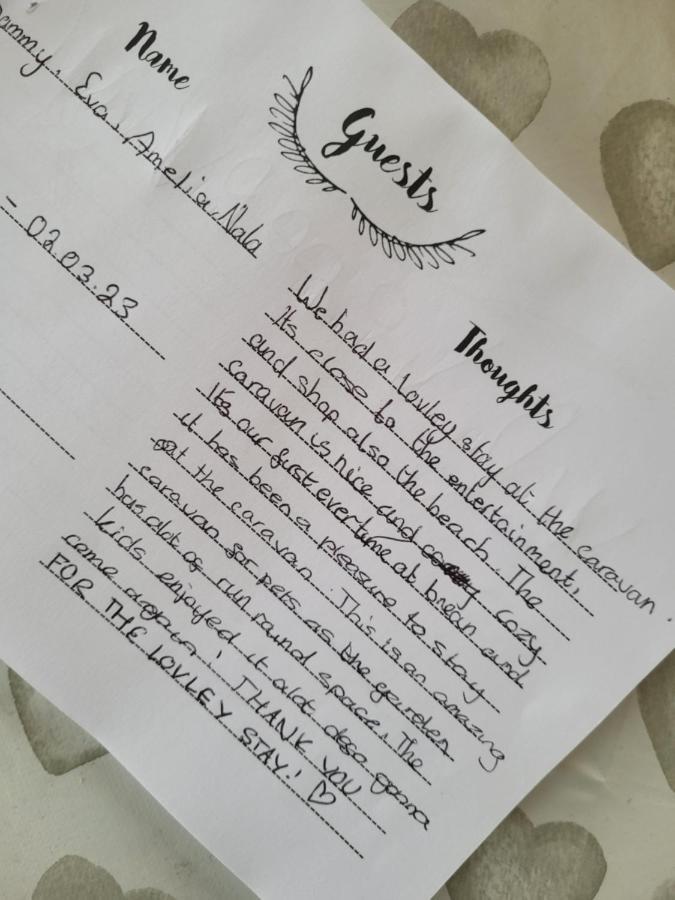 Guests
Name
ammy, Eva, Amelia, Nala
- 02.03.23
Thoughts
We had a lovley stay at the caravan.
Its close to the entertainment,
and shop also the beach. The
caravan is nice and cozy
Its our first ever time at brean and
it has been a pleasure to stay
at the caravan. This is an amazing
caravan for pets as the garden
has alot of run round space. The
kids enjoyed it alot defo gonna
come again! THANK YOU
FOR THE LOVLEY STAY! ♡